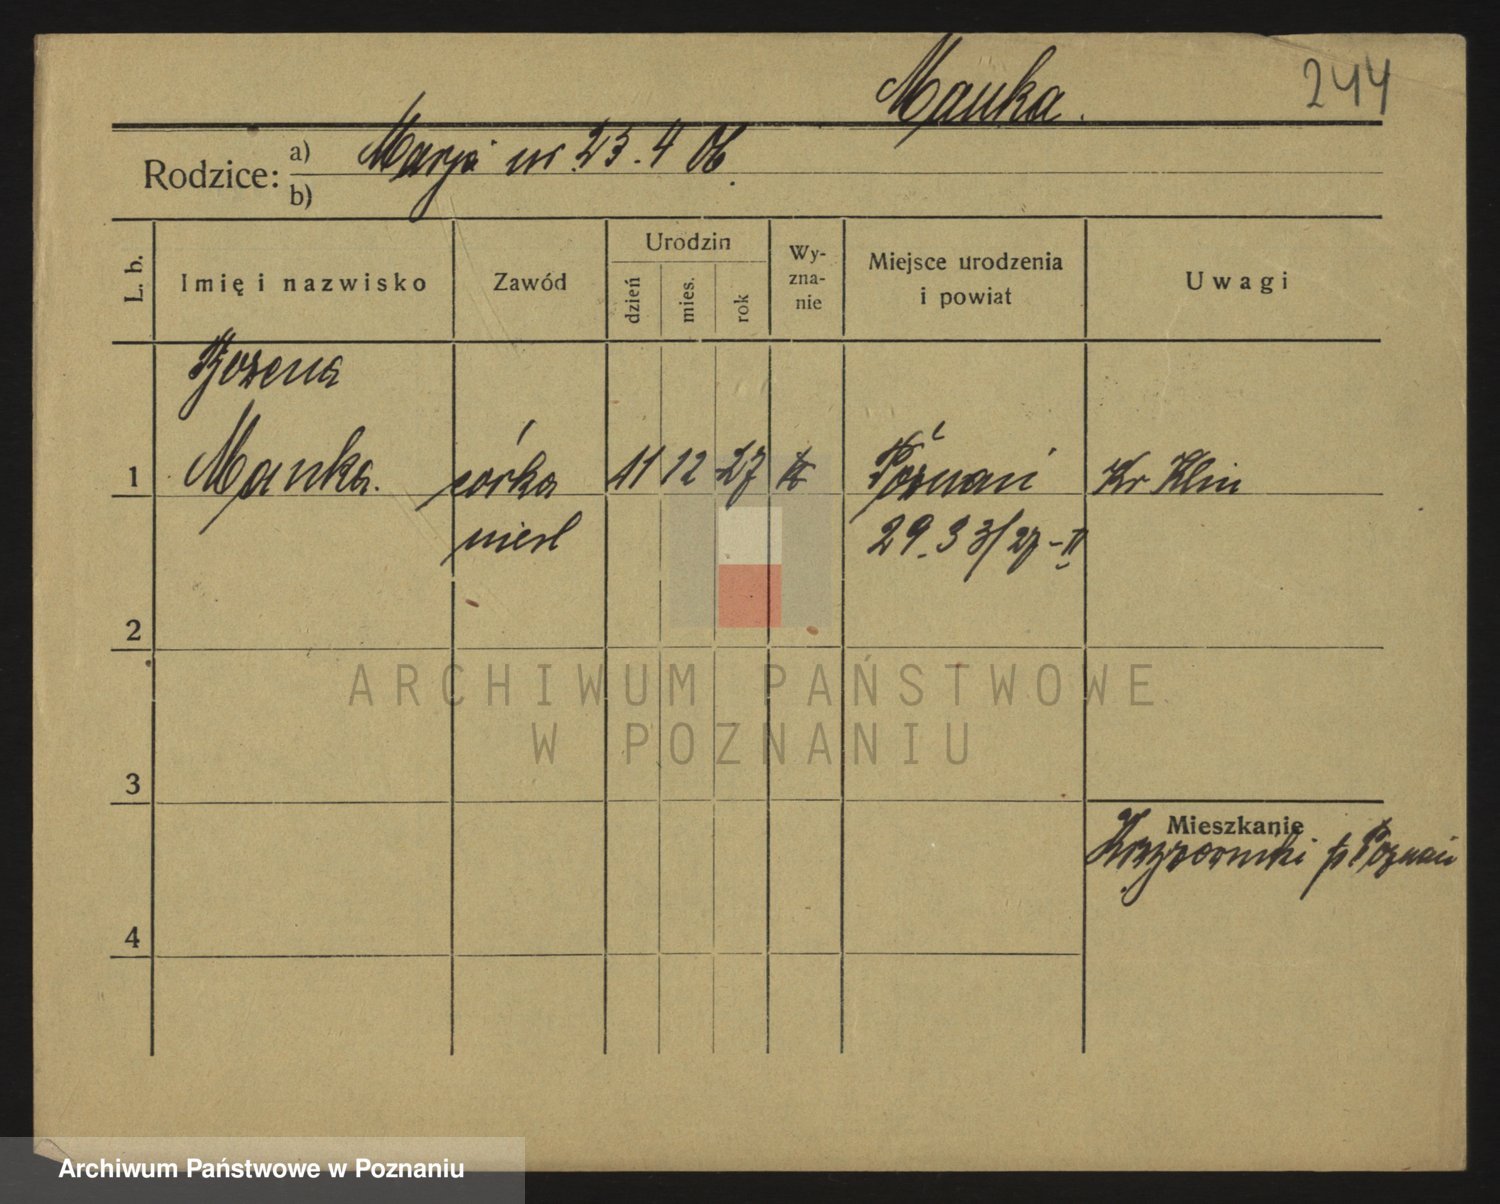 Manka.
244
Rodzice: a) Marja ur. 25.4 06.
b)
L. b.
Imię i nazwisko
Zawód
Urodzin
dzień
mies.
rok
Wy-
zna-
nie
Miejsce urodzenia
i powiat
Uwagi
Bożena
1 Manka. córka 11 12 27 Poznań
niesl 29.3 3/27-II
2
3
4
Mieszkanie
p Poznań
ARCHIWUM PAŃSTWOWE
W POZNANIU
Archiwum Państwowe w Poznaniu